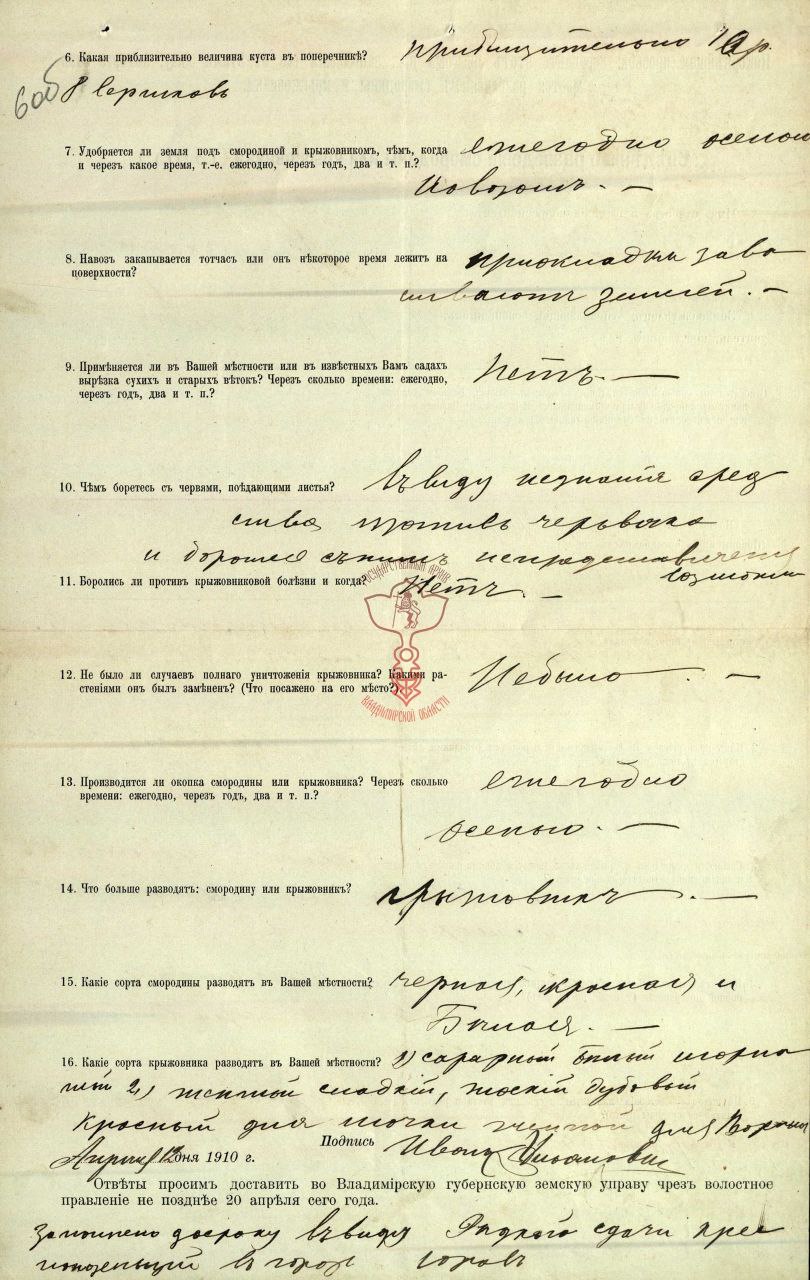 6. Какая приблизительно величина куста въ поперечникѣ? приблизительно 1 ар.
8 вершковъ
7. Удобряется ли земля подъ смородиной и крыжовникомъ, чѣмъ, когда ежегодно осенью
и черезъ какое время, т.-е. ежегодно, черезъ годъ, два и т. п.?
8. Навозъ закапывается тотчасъ или онъ нѣкоторое время лежитъ на
поверхности?
землей. —
9. Примѣняется ли въ Вашей мѣстности или въ извѣстныхъ Вамъ садахъ
вырѣзка сухихъ и старыхъ вѣтокъ? Черезъ сколько времени: ежегодно, Нетъ. —
черезъ годъ, два и т. п.?
10. Чѣмъ боретесь съ червями, поѣдающими листья? Въ виду незнанія сред
ства противъ червяка
и
11. Боролись ли противъ крыжовниковой болѣзни и когда? Нетъ. —
ГОСУДАРСТВЕННЫЙ АРХИВ
ВЛАДИМИРСКОЙ ОБЛАСТИ
12. Не было ли случаевъ полнаго уничтоженія крыжовника? Какими ра- Небыло. —
стеніями онъ былъ замѣненъ? (Что посажено на его мѣсто?).
13. Производится ли окопка смородины или крыжовника? Черезъ сколько ежегодно
времени: ежегодно, черезъ годъ, два и т. п.?
осенью. —
14. Что больше разводятъ: смородину или крыжовникъ? крыжовникъ. —
15. Какіе сорта смородины разводятъ въ Вашей мѣстности? черная, красная и
Бѣлая. —
16. Какіе сорта крыжовника разводятъ въ Вашей мѣстности? 1)
2) сладкій,
красный для для
Подпись Иванъ
Апреля 12 дня 1910 г.
Отвѣты просимъ доставить во Владимірскую губернскую земскую управу чрезъ волостное
правленіе не позднѣе 20 апрѣля сего года.
въ виду сдачи
въ городъ